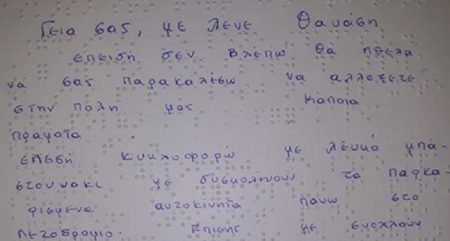 Γεια σας, με λενε Θαναση
επειδη δεν βλεπω θα ηθελα
να σας παρακαλεσω να αλλεξετε
στην πολη μας καποια
πραματα
επεδη κυκλοφορω με λευκό μπα-
στουνακι με δυσκολευουν τα παρκα-
ρισμενα αυτοκινητα πανω στο
πεζοδρομιο. Επισης με ενοχλουν